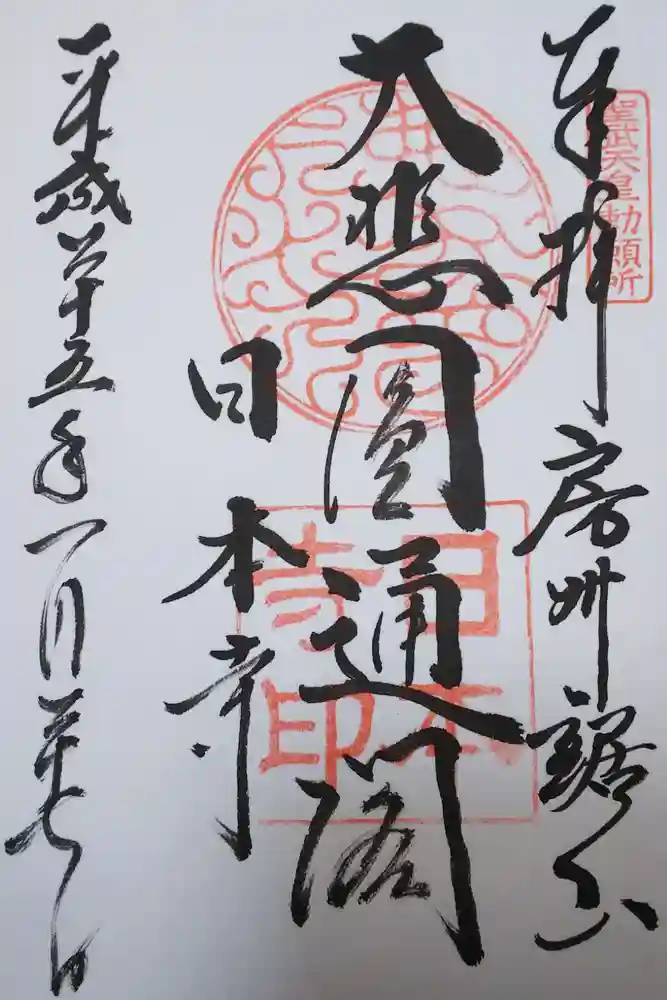 奉拝 房州鋸山
聖武天皇勅願所
大悲圓通閣
日本寺
日本寺印
平成廿五年一月廿七日